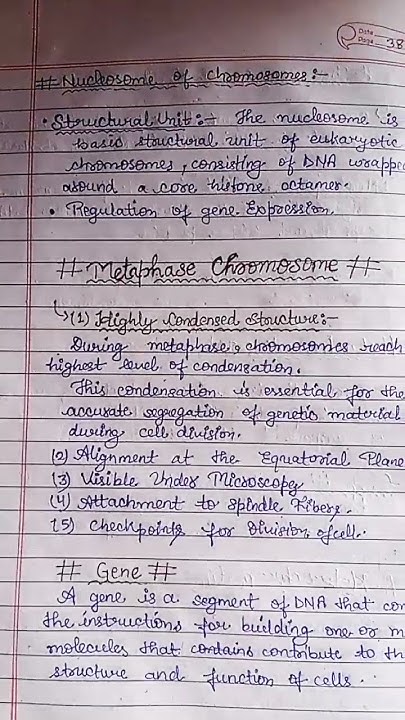 Date
Page 38
# Nucleosome of chromosomes:-
• Structural Unit:- The nucleosome is
basic structural unit of eukaryotic
chromosomes, consisting of DNA wrappe
around a core histone octamer.
• Regulation of gene Expression
# Metaphase Chromosome #
↳(1) Highly Condensed Structure:-
During metaphase, chromosomes reach
highest level of condensation.
This condensation is essential for the
accurate segregation of genetic material
during cell division.
(2) Alignment at the Equatorial Plane
(3) Visible Under Microscopy
(4) Attachment to Spindle Fibers.
(5) Checkpoints for Division of cell.
# Gene #
A gene is a segment of DNA that con
the instructions for building one or m
molecules that contains contribute to th
structure and function of cells.